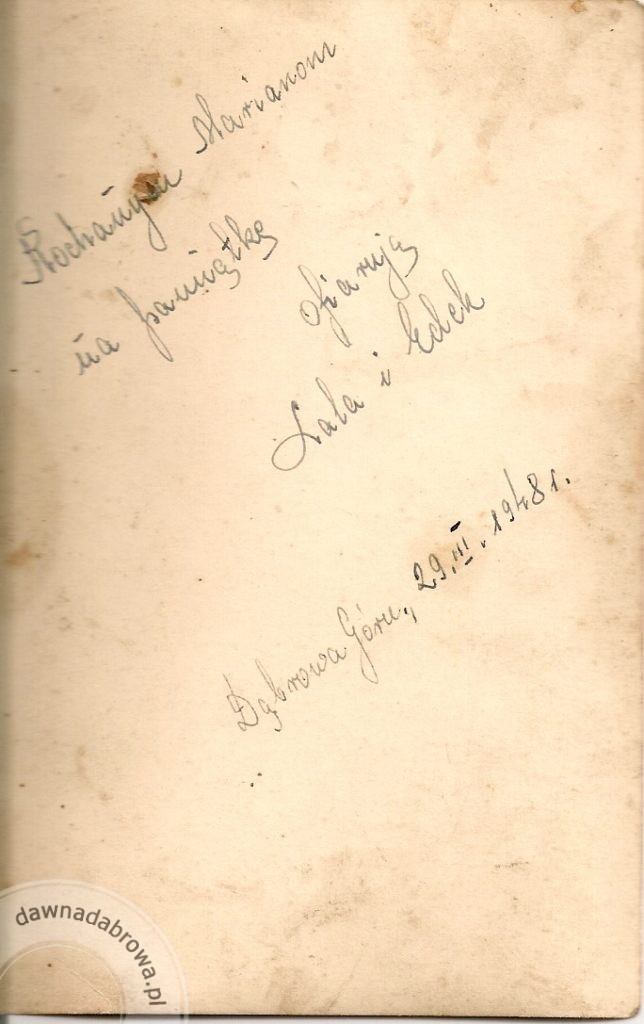 Kochanym Marianom
na pamiątkę
ofiarują
Lala i Edek
Dąbrowa Górn., 29.III.1948 r.
dawnadabrowa.pl